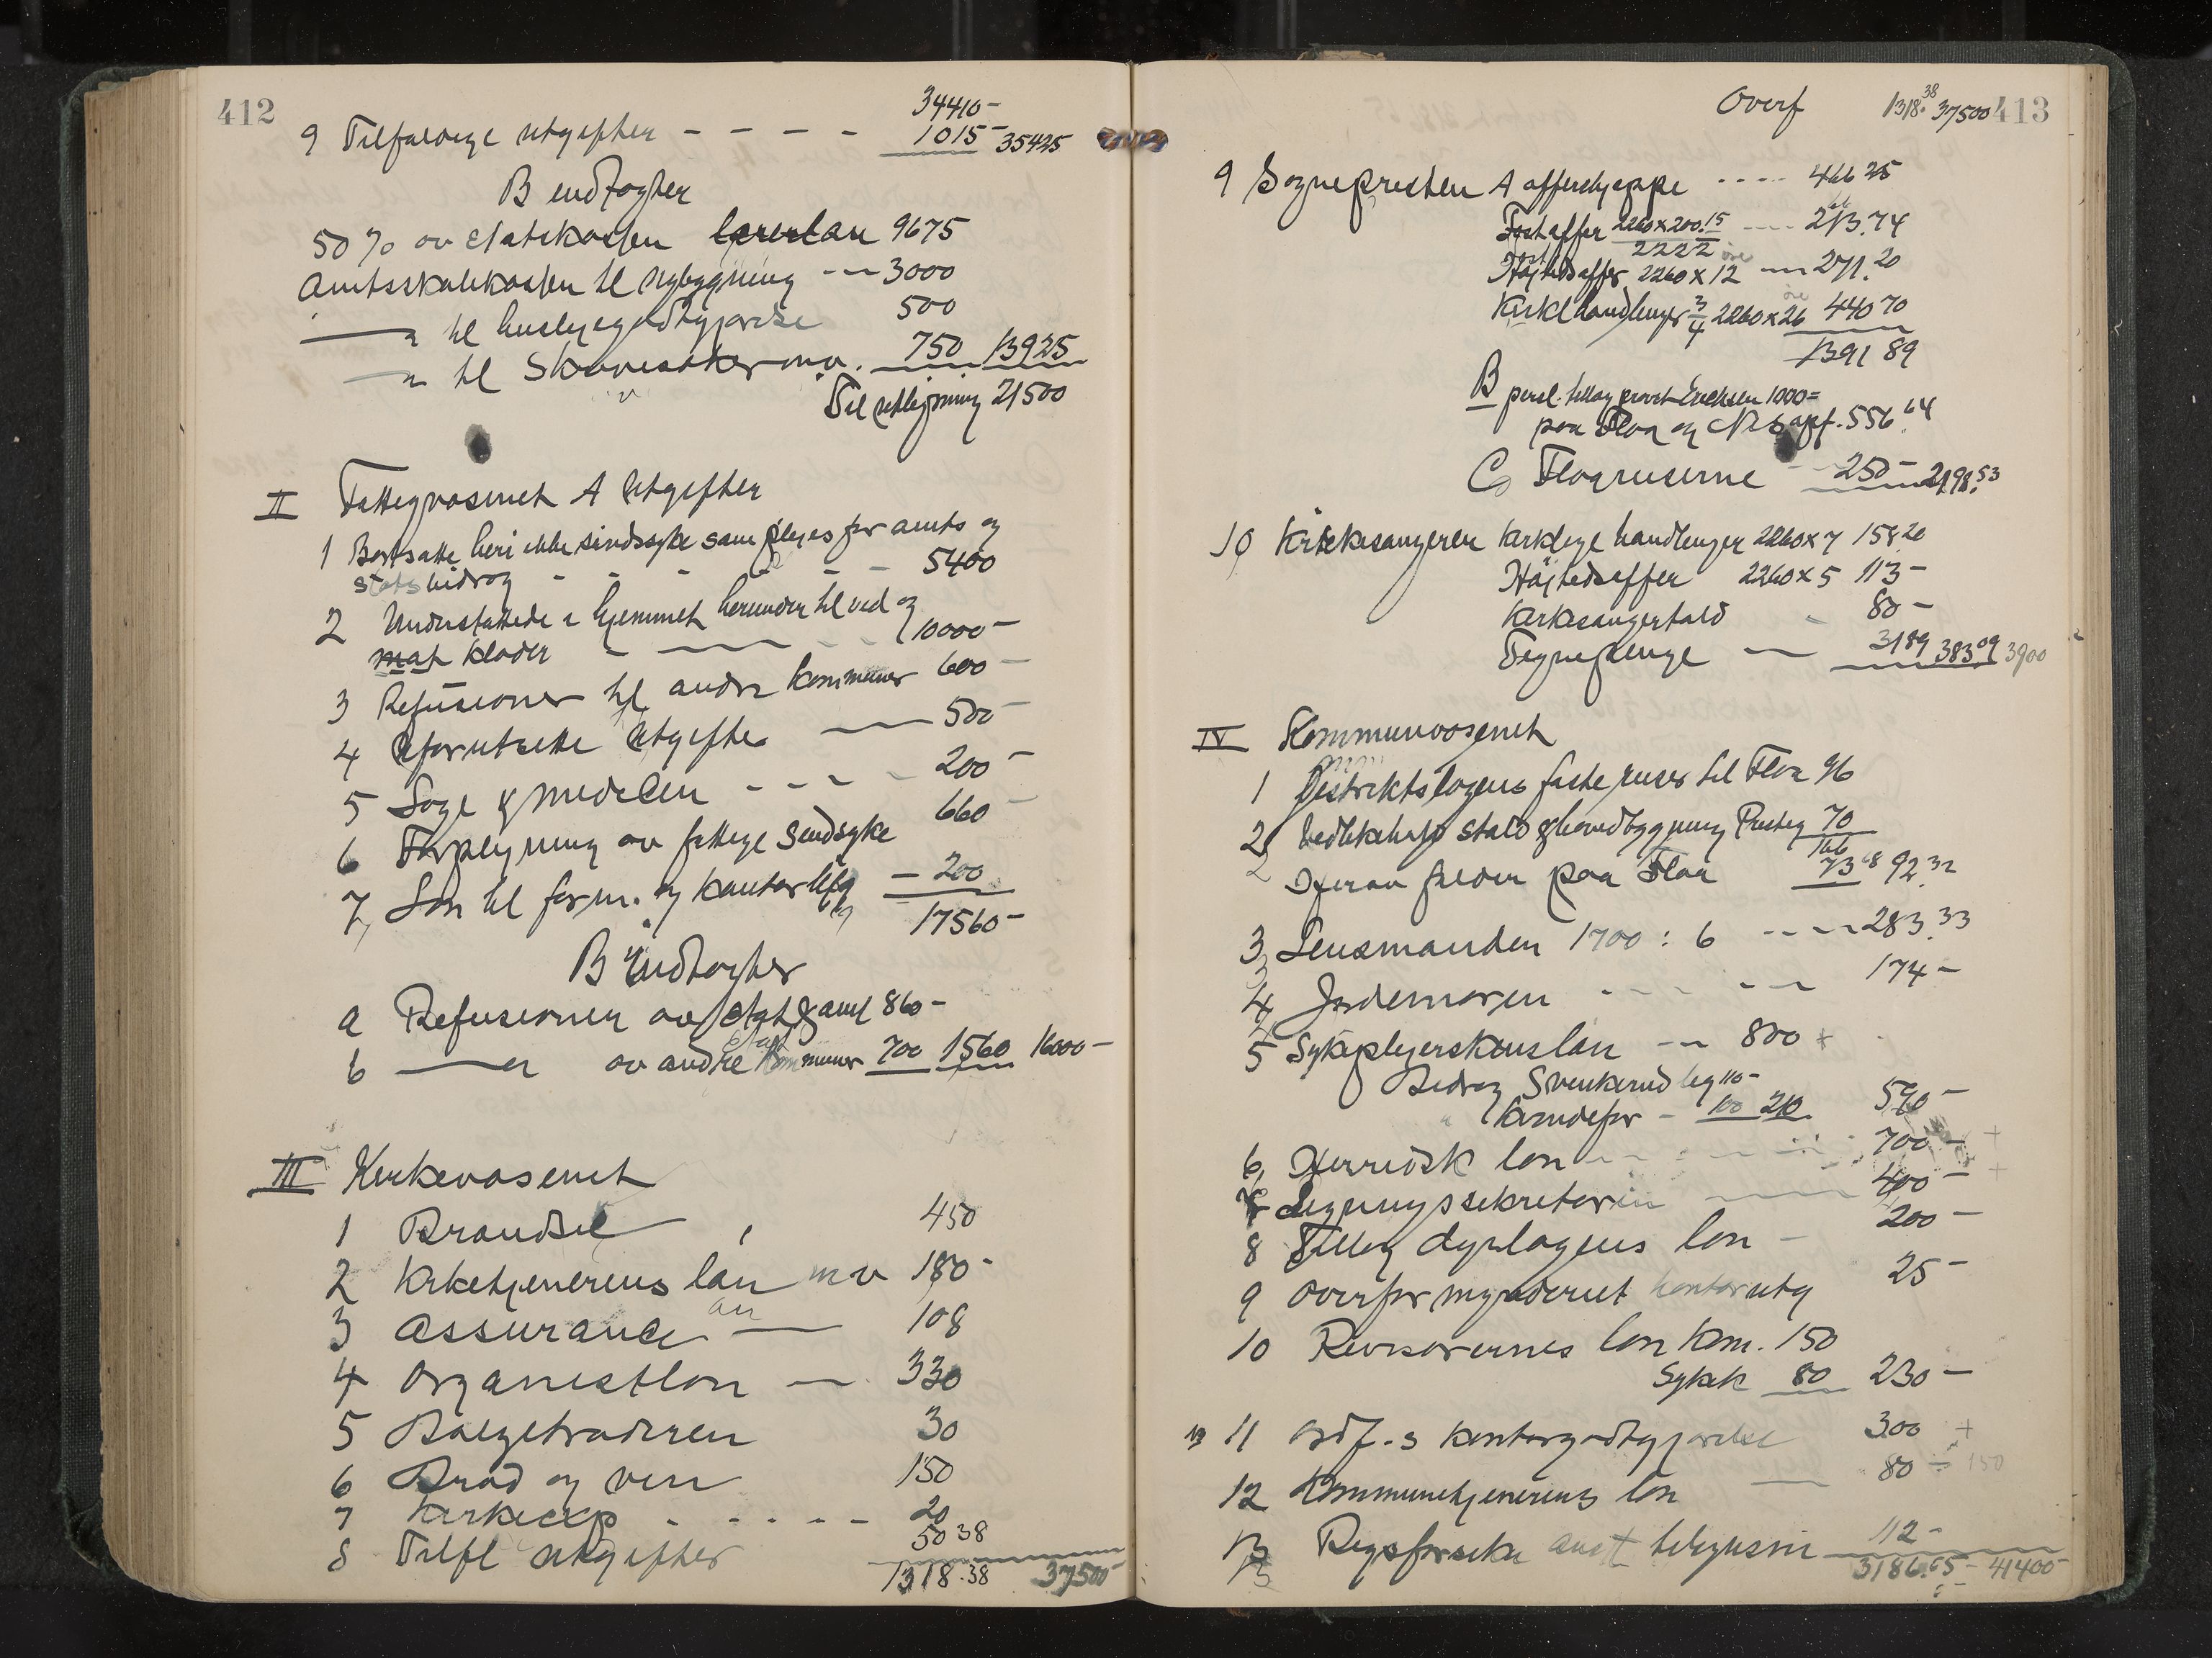 412
34410-
9 Tilfældige utgifter - - - - 1015- 35425
B indtægter
50 % av statskassen lærerløn 9675
Amtsskolekassen til nybygning -- 3000
—"— til husleiegodtgjørelse 500
—"— til Skolesaker m.v. 750 13925
Til utligning 21500
II Fattigvæsenet A Utgifter
1 Bortsatte heri ikke sindssyke som pleies for amts og
statsbidrag - - - - - - 5400
2 Understøttede i hjemmet herunder til ved og
mat klæder - — - - 10000-
3 Refusioner til andre kommuner 600-
4 Uforutsette Utgifter — 500-
5 Læge & medicin - - - - 200-
6 Forpleining av fattige Sindsyke 660-
7, Løn til form. og kontorhjælp - 200
17560-
B Indtægter
a Refusioner av stat & amt 860-
b —"— av andre kommuner 700 1560 16000-
III Kirkevæsenet
1 Brændsel 450
2 Kirketjenerens løn m v 180-
3 Assurance — 108
4 Organistløn — 330
5 Bælgetræderen 30
6 Brød og vin 150
7 Kirkeexp - - - - - 20
8 Tilfl utgifter 50 38
1318.38 37500-
Overf 1318.38 37500 413
9 Sognepresten A offerskjæppe ---- 466 25
2260x200.15 ---- 213.74
2222
Høitidsoffer 2260 x 12 -- 271.20
Kirkl handlinger 3/4 2260 x 26 440 70
1391 89
B persl. tillæg provst Erichsen 1000=
paa Flaa og Nes opf. 556.64
C Flaareiserne - 250- 2198.53
10 Kirkesangeren kirkelige handlinger 2260x7 158 20
Høitidsoffer 2260 x 5 113-
Kirkesangertold - 80-
Degnepenge — 3189 383 09 3900
IV Kommunevæsenet
1 Distriktslægens faste reiser til Flaa 96
2 Vedlikehold stald & hovedbygning Presteg 70
166
Herav falder paa Flaa 73 68 92.32
3 Lensmanden 1700 : 6 ---- 283.33
4 Jordemoren - - - - - 174-
5 Sykepleierskens løn -- 800 +
Bidrag Svenkerud leg 110-
100 210 590-
6, Herredsk løn - - - - 700- +
7 Ligningssekretæren — 400- +
8 Tillæg dyrlægens løn - 200-
9 Overformynderiet kontorutg 25-
10 Revisorernes løn kom. 150
Sykek 80 230-
11 Ordf.s kontorgodtgjørelse 300 +
12 Kommunetjenerens løn — 80 ÷ 150
13 112-
3186.65- 41400-